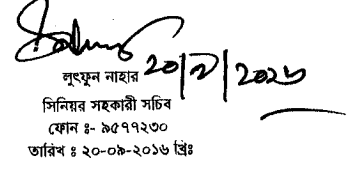 ২০/৯/২০১৬
লুৎফুন নাহার
সিনিয়র সহকারী সচিব
ফোন ঃ- ৯৫৭৭২৩০
তারিখ ঃ ২০-০৯-২০১৬ খ্রিঃ